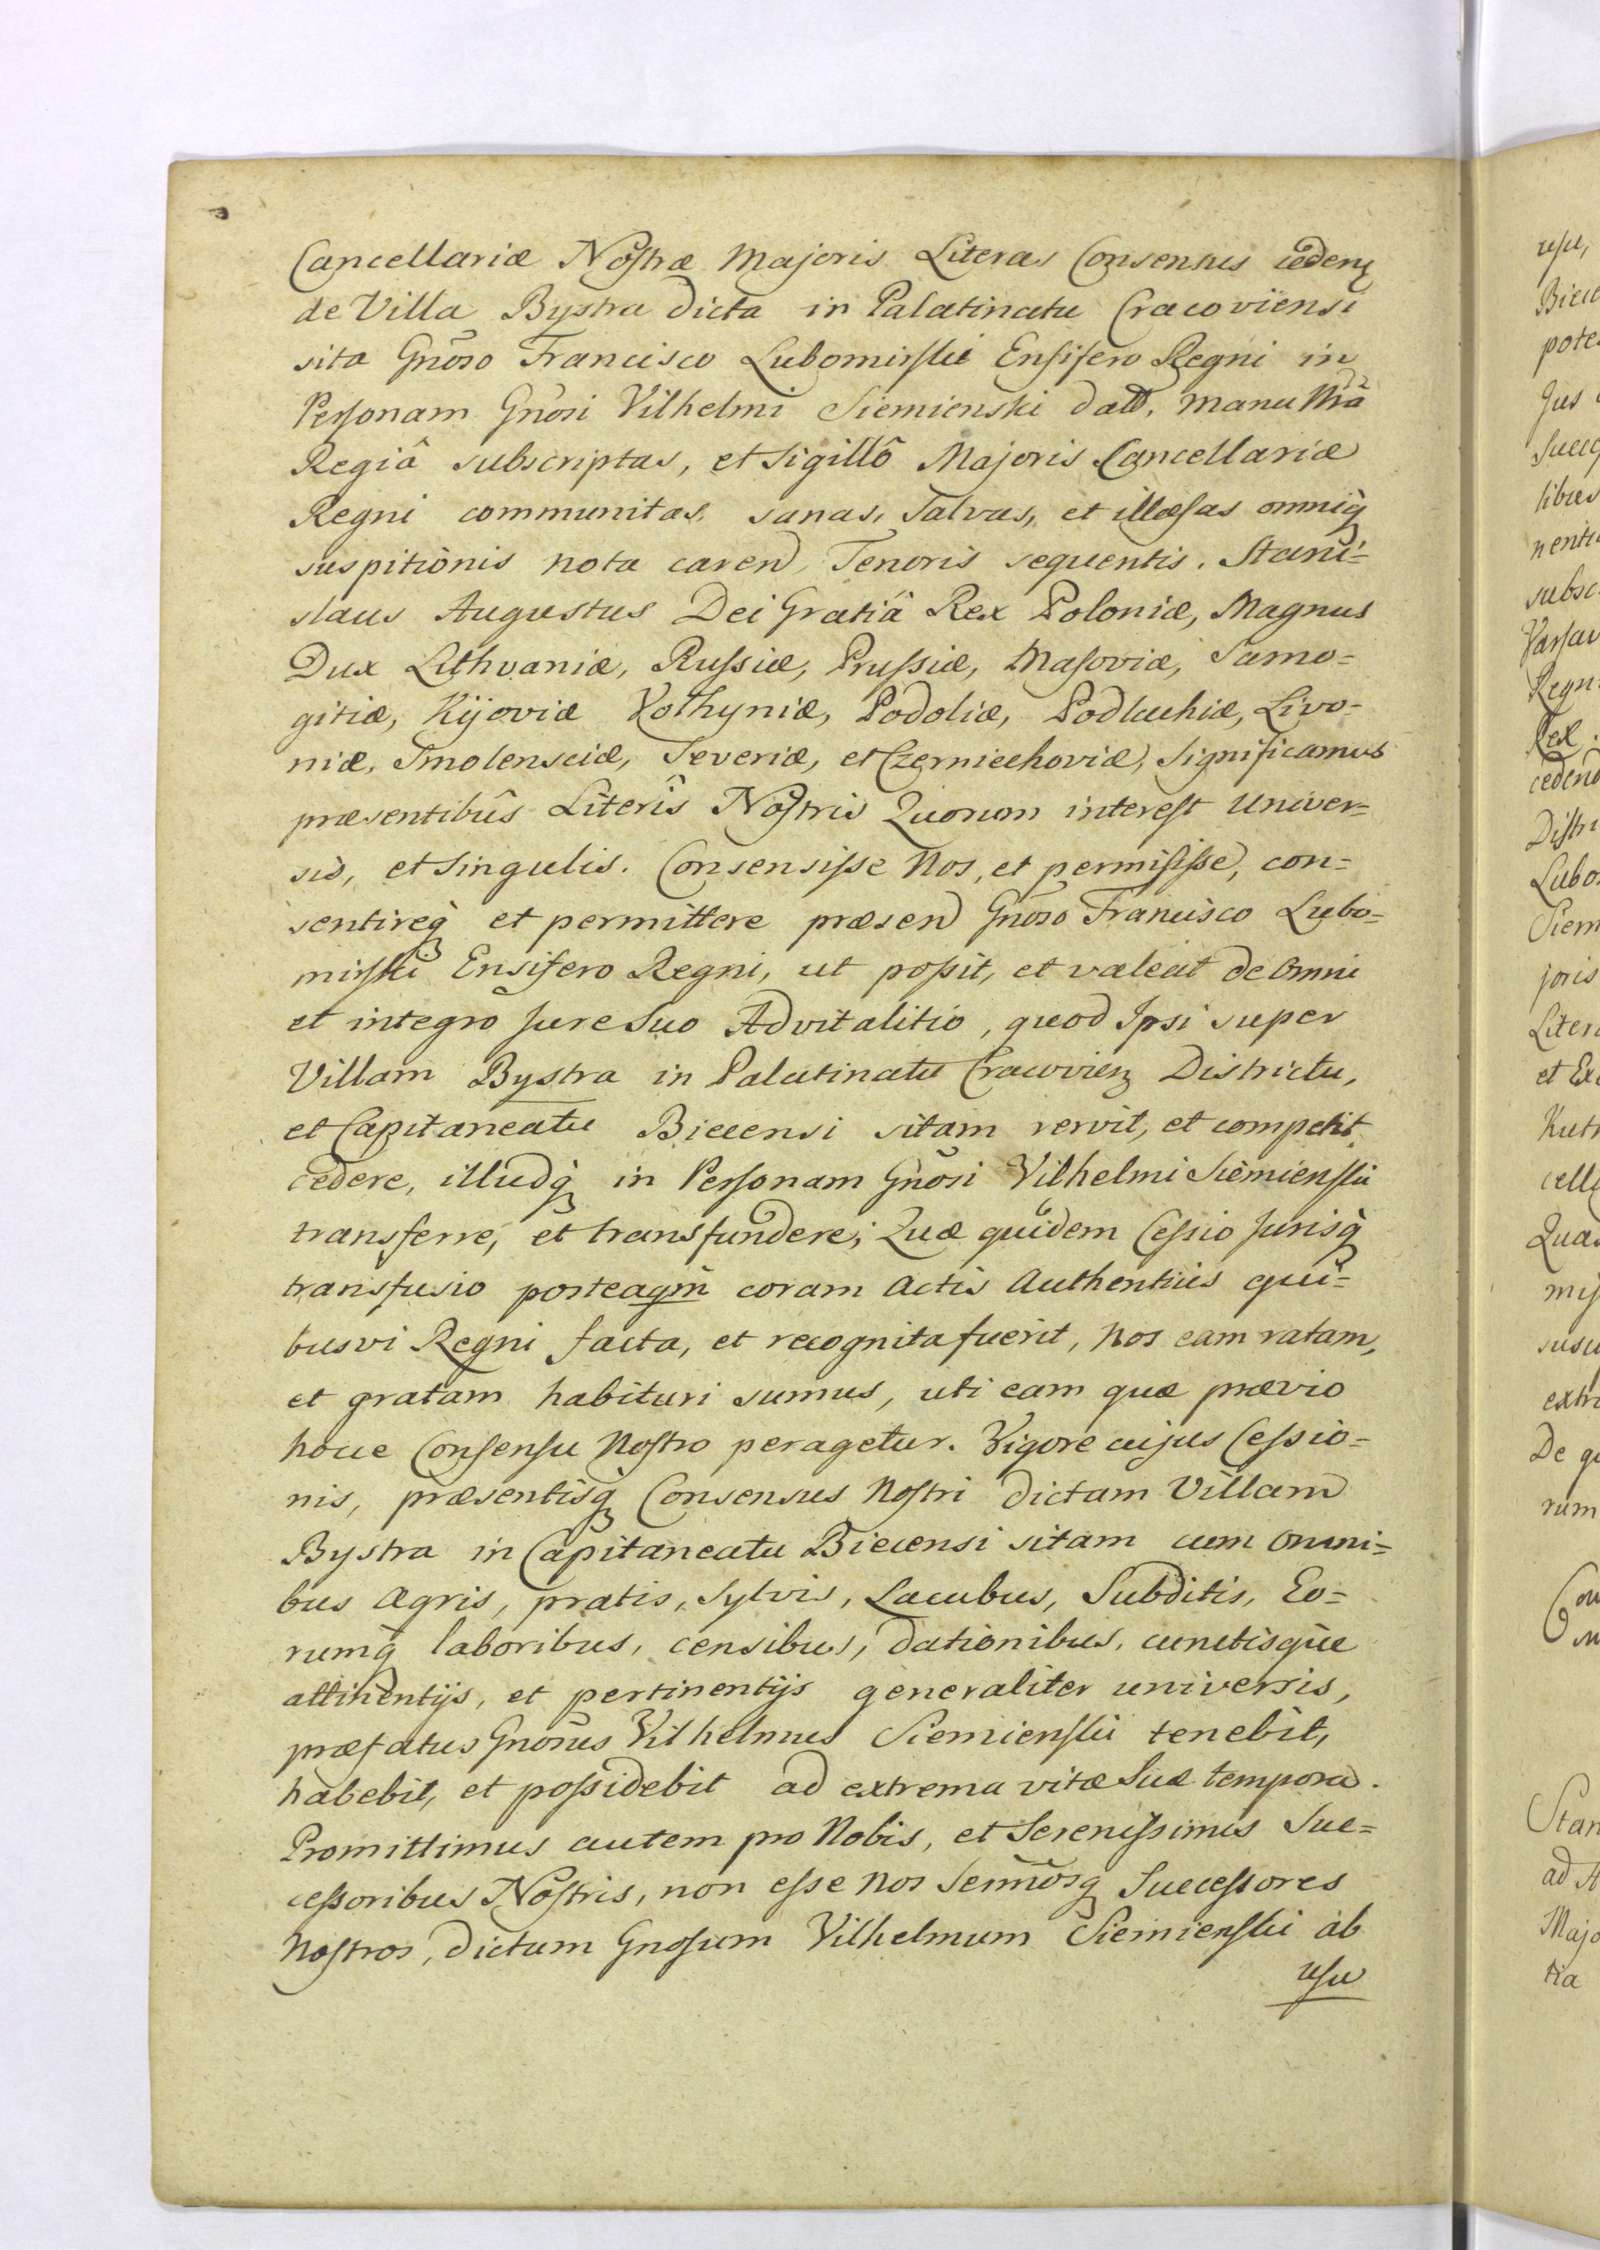 Cancellariæ Nostræ Majoris Literas Consensus cedenꝫ
de Villa Bystra dicta in Palatinatu Cracoviensi
sita Gnõso Francisco Lubomirski Ensifero Regni in
Personam Gnõsi Vilhelmi Siemienski datt, manu Nrã
Regiâ subscriptas, et Sigillô Majoris Cancellariæ
Regni communitas, sanas, Salvas, et illæsas omniq̀
suspitionis nota carend Tenoris sequentis. Stani=
slaus Augustus Dei Gratiâ Rex Poloniæ, Magnus
Dux Lithvaniæ, Russiæ, Prussiæ, Masoviæ, Samo=
gitiæ, Kijoviæ Volhyniæ, Podoliæ, Podlachiæ, Livo=
niæ, Smolensciæ, Severiæ, et Czerniechoviæ, Significamus
præsentibûs Literîs Nostris Quorum interest Univer=
sis, et Singulis. Consensisse Nos, et permisisse, con=
sentireq̀ et permittere præsend Gnõso Francisco Lubo=
mirski Ensifero Regni, ut possit, et valeat de Omni
et integro Jure Suo Advitalitio, quod Ipsi super
Villam Bystra in Palatinatu Cracovienꝫ Districtu,
et Capitaneatu Biecensi sitam servit, et competit
cedere, illudq̀ in Personam Gnõsi Vilhelmi Siemienski
transferre, et transfundere; Quæ quidem Cessio Jurisq̀
transfusio posteaqm̃ coram Actis Authenticis qui=
busvi Regni facta, et recognita fuerit, Nos eam ratam,
et gratam habituri sumus, uti eam quæ prævio
hocce Consensu Nostro peragetur. Vigore cujus Cessio=
nis, præsentisq̀ Consensus Nostri dictam Villam
Bystra in Capitaneatu Biecensi sitam cum Omni=
bus Agris, pratis, Sylvis, Lacubus, Subditis, Eo=
rumq̀ laboribus, censibus, dationibus, cunctisque
attinentijs, et pertinentijs generaliter universis,
præfatus Gnõsus Vilhelmus Siemienski tenebit,
habebit, et possidebit ad extrema vitæ Suæ tempora.
Promittimus autem pro Nobis, et Serenissimis Suc=
cessoribus Nostris, non esse Nos Sernm̃osq̀ Successores
Nostros, dictum Gnosum Vilhelmum Siemienski ab
usu
usu,
Biece
pote
Jus
Succ
libus
nenti
subsc
Varsav
Regn
Rex
cedend
Distri
Lubo
Siem
joris
Liter
et Ex
Kut
cell
Qua
mis
susc
extr
De q
rum
Con
Stan
ad
Majo
tia